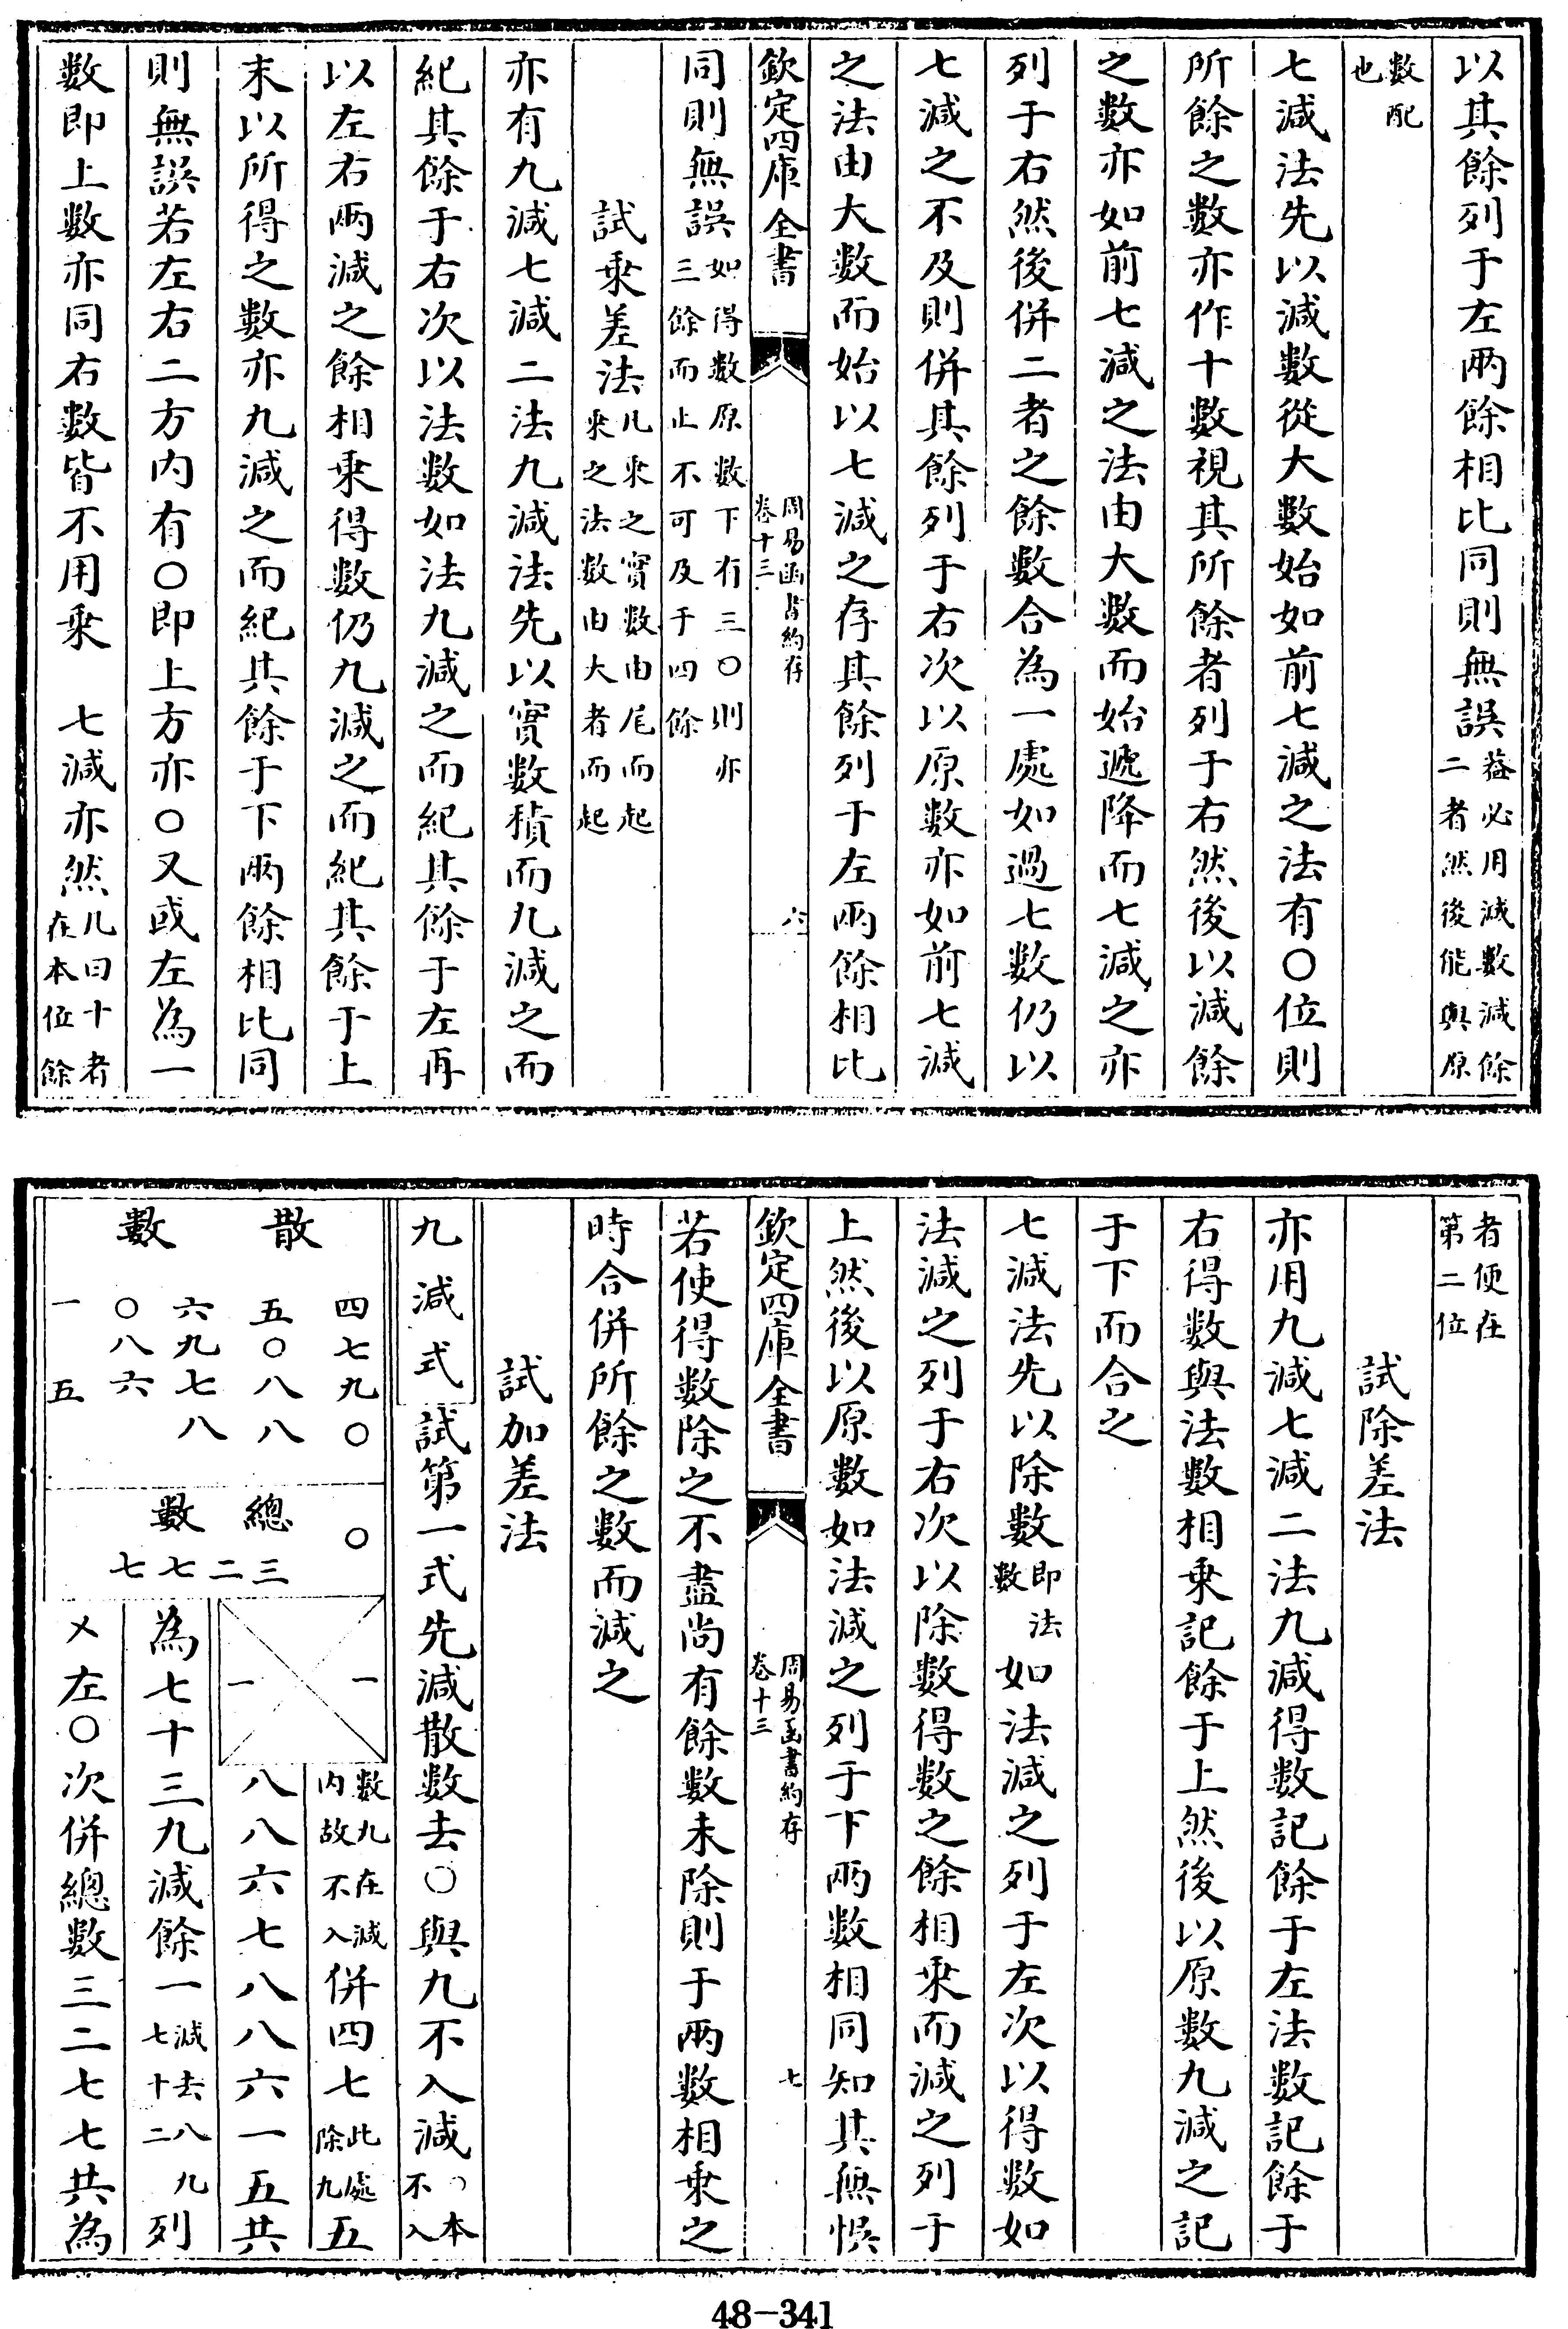 以其餘列于左兩餘相比同則無誤蓋必用減數減餘二者然後能與原
數配也
七減法先以減數從大數始如前七減之法有〇位則
所餘之數亦作十數視其所餘者列于右然後以減餘
之數亦如前七減之法由大數而始遞降而七減之亦
列于右然後併二者之餘數合為一處如過七數仍以
七減之不及則併其餘列于右次以原數亦如前七減
之法由大數而始以七減之存其餘列于左兩餘相比
欽定四庫全書 周易函書約存卷十三 六
同則無誤如得數原數下有三〇則亦三餘而止不可及于四餘
試乘差法凡乘之實數由尾而起乘之法數由大者而起
亦有九減七減二法九減法先以實數積而九減之而
紀其餘于右次以法數如法九減之而紀其餘于左再
以左右兩減之餘相乘得數仍九減之而紀其餘于上
末以所得之數亦九減之而紀其餘于下兩餘相比同
則無誤若左右二方内有〇即上方亦〇又或左為一
數即上數亦同右數皆不用乘 七減亦然凡曰十者在本位餘
者便在第二位
試除差法
亦用九減七減二法九減得數記餘于左法數記餘于
右得數與法數相乘記餘于上然後以原數九減之記
于下而合之
七減法先以除數即法數如法減之列于左次以得數如
法減之列于右次以除數得數之餘相乘而減之列于
上然後以原數如法減之列于下兩數相同知其無悞
欽定四庫全書 周易函書約存卷十三 七
若使得數除之不盡尚有餘數未除則于兩數相乘之
時合併所餘之數而減之
試加差法
九減式試第一式先減散數去〇與九不入減〇本不入
散數
四七九〇〇
五〇八八
六九七八
〇八六
一五
總數
三二七七
一
一
數九在減内故不入併四七此處除九五
八八六七八八六一五共
為七十三九減餘一減去八九七十二列
〤左〇次併總數三二七七共為
48-341